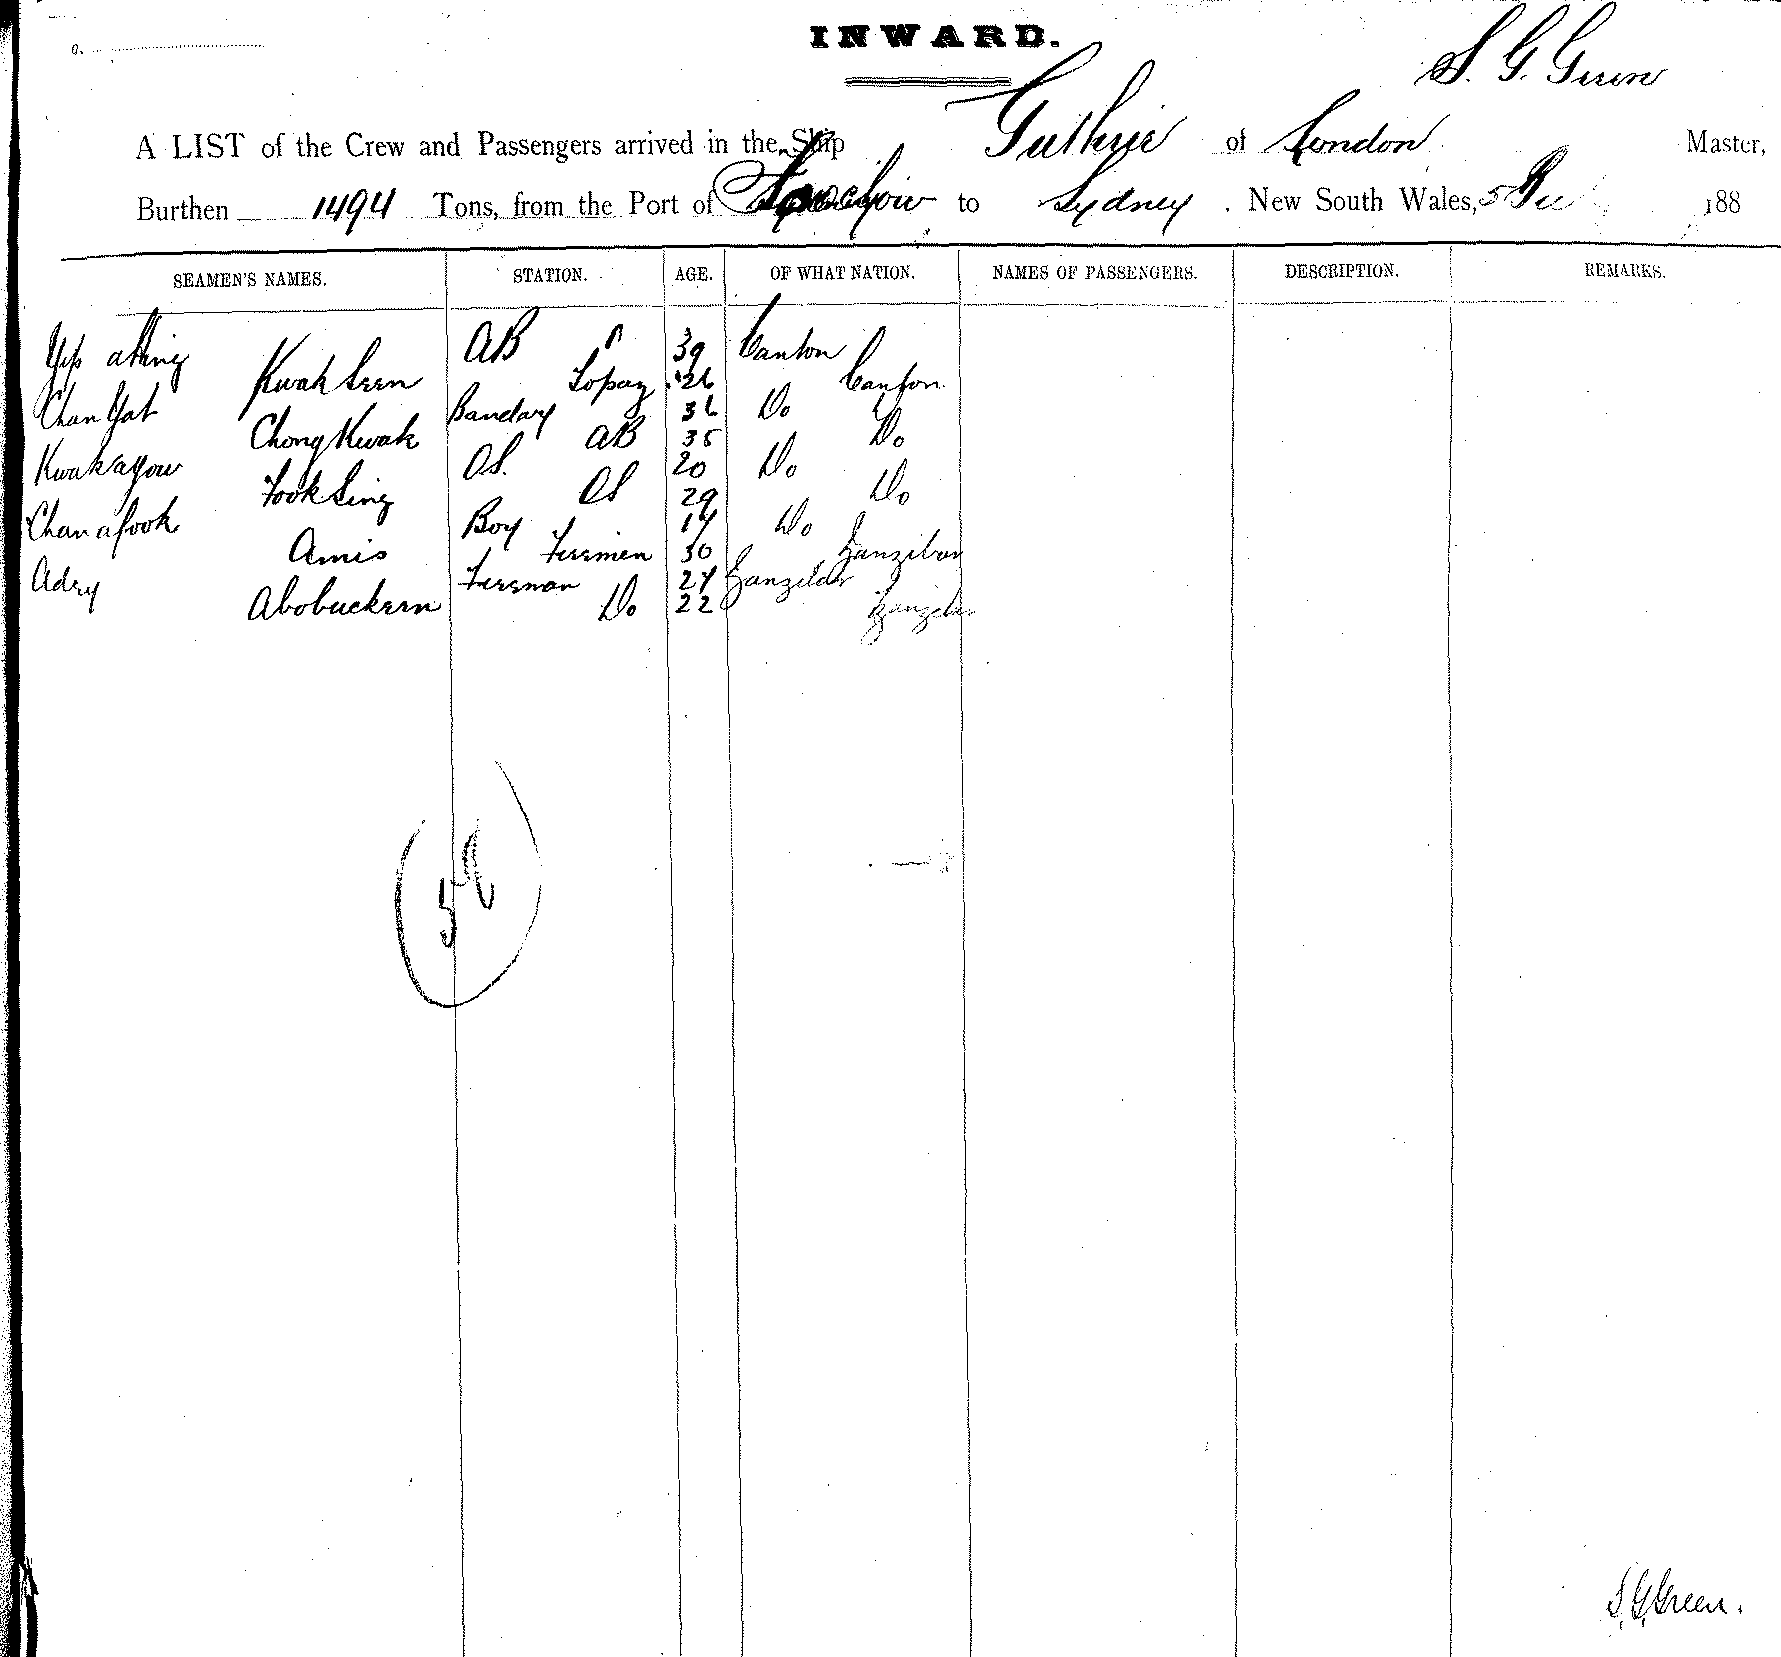 INWARD.
S. G. Green
A LIST of the Crew and Passengers arrived in the Ship Guthrie of London Master,
Burthen 1494 Tons, from the Port of Foochow to Sydney . New South Wales, 5 188
SEAMEN'S NAMES. STATION. AGE. OF WHAT NATION. NAMES OF PASSENGERS. DESCRIPTION. REMARKS.
Yip AB 39 Canton
Kwak Seen 26 Canton
Chan Yat Bandary 36 Do
Chong Kwak AB 35 Do
Kwak ayow OS. 20 Do
Fook Sing OS 29 Do
Chan afook Boy 14 Do
Amis Firemen 30 Zanzibar
Adry Fireman 24 Zanzibar
Abobuckeen Do 22 Zanzibar
59
S. G. Green.